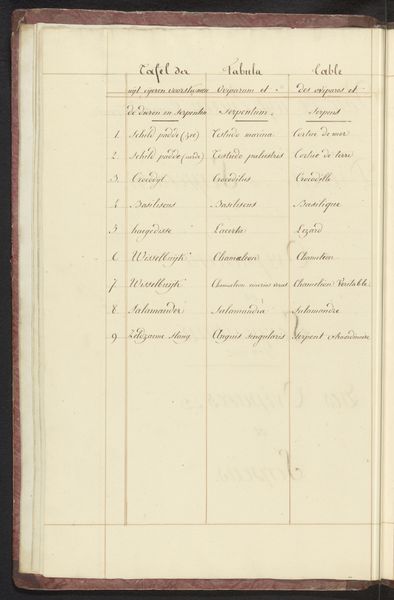 Tafel der Tabula Table
uijt eijeren voortkomen Oviparum et des ovipares et
de dieren en serpenten Serpentum. Serpens
1. Schild padde (zee) Testudo marina Tortue de mer
2. Schild padde (aarde) Testudo palustris Tortue de terre
3 Crocodyl Crocodilus Crocodille
4 Basiliscus Basiliscus Basilique
5 haegedisse Lacerta Lezard
6 Wisselbuijk Chamaeleon Chameleon
7 Wisselbuijk Chamaeleon Chameleon Veritable
8 Salamander Salamandra Salamandre
9 Zeldzaeme slang Anguis singularis Serpent extraordinaire